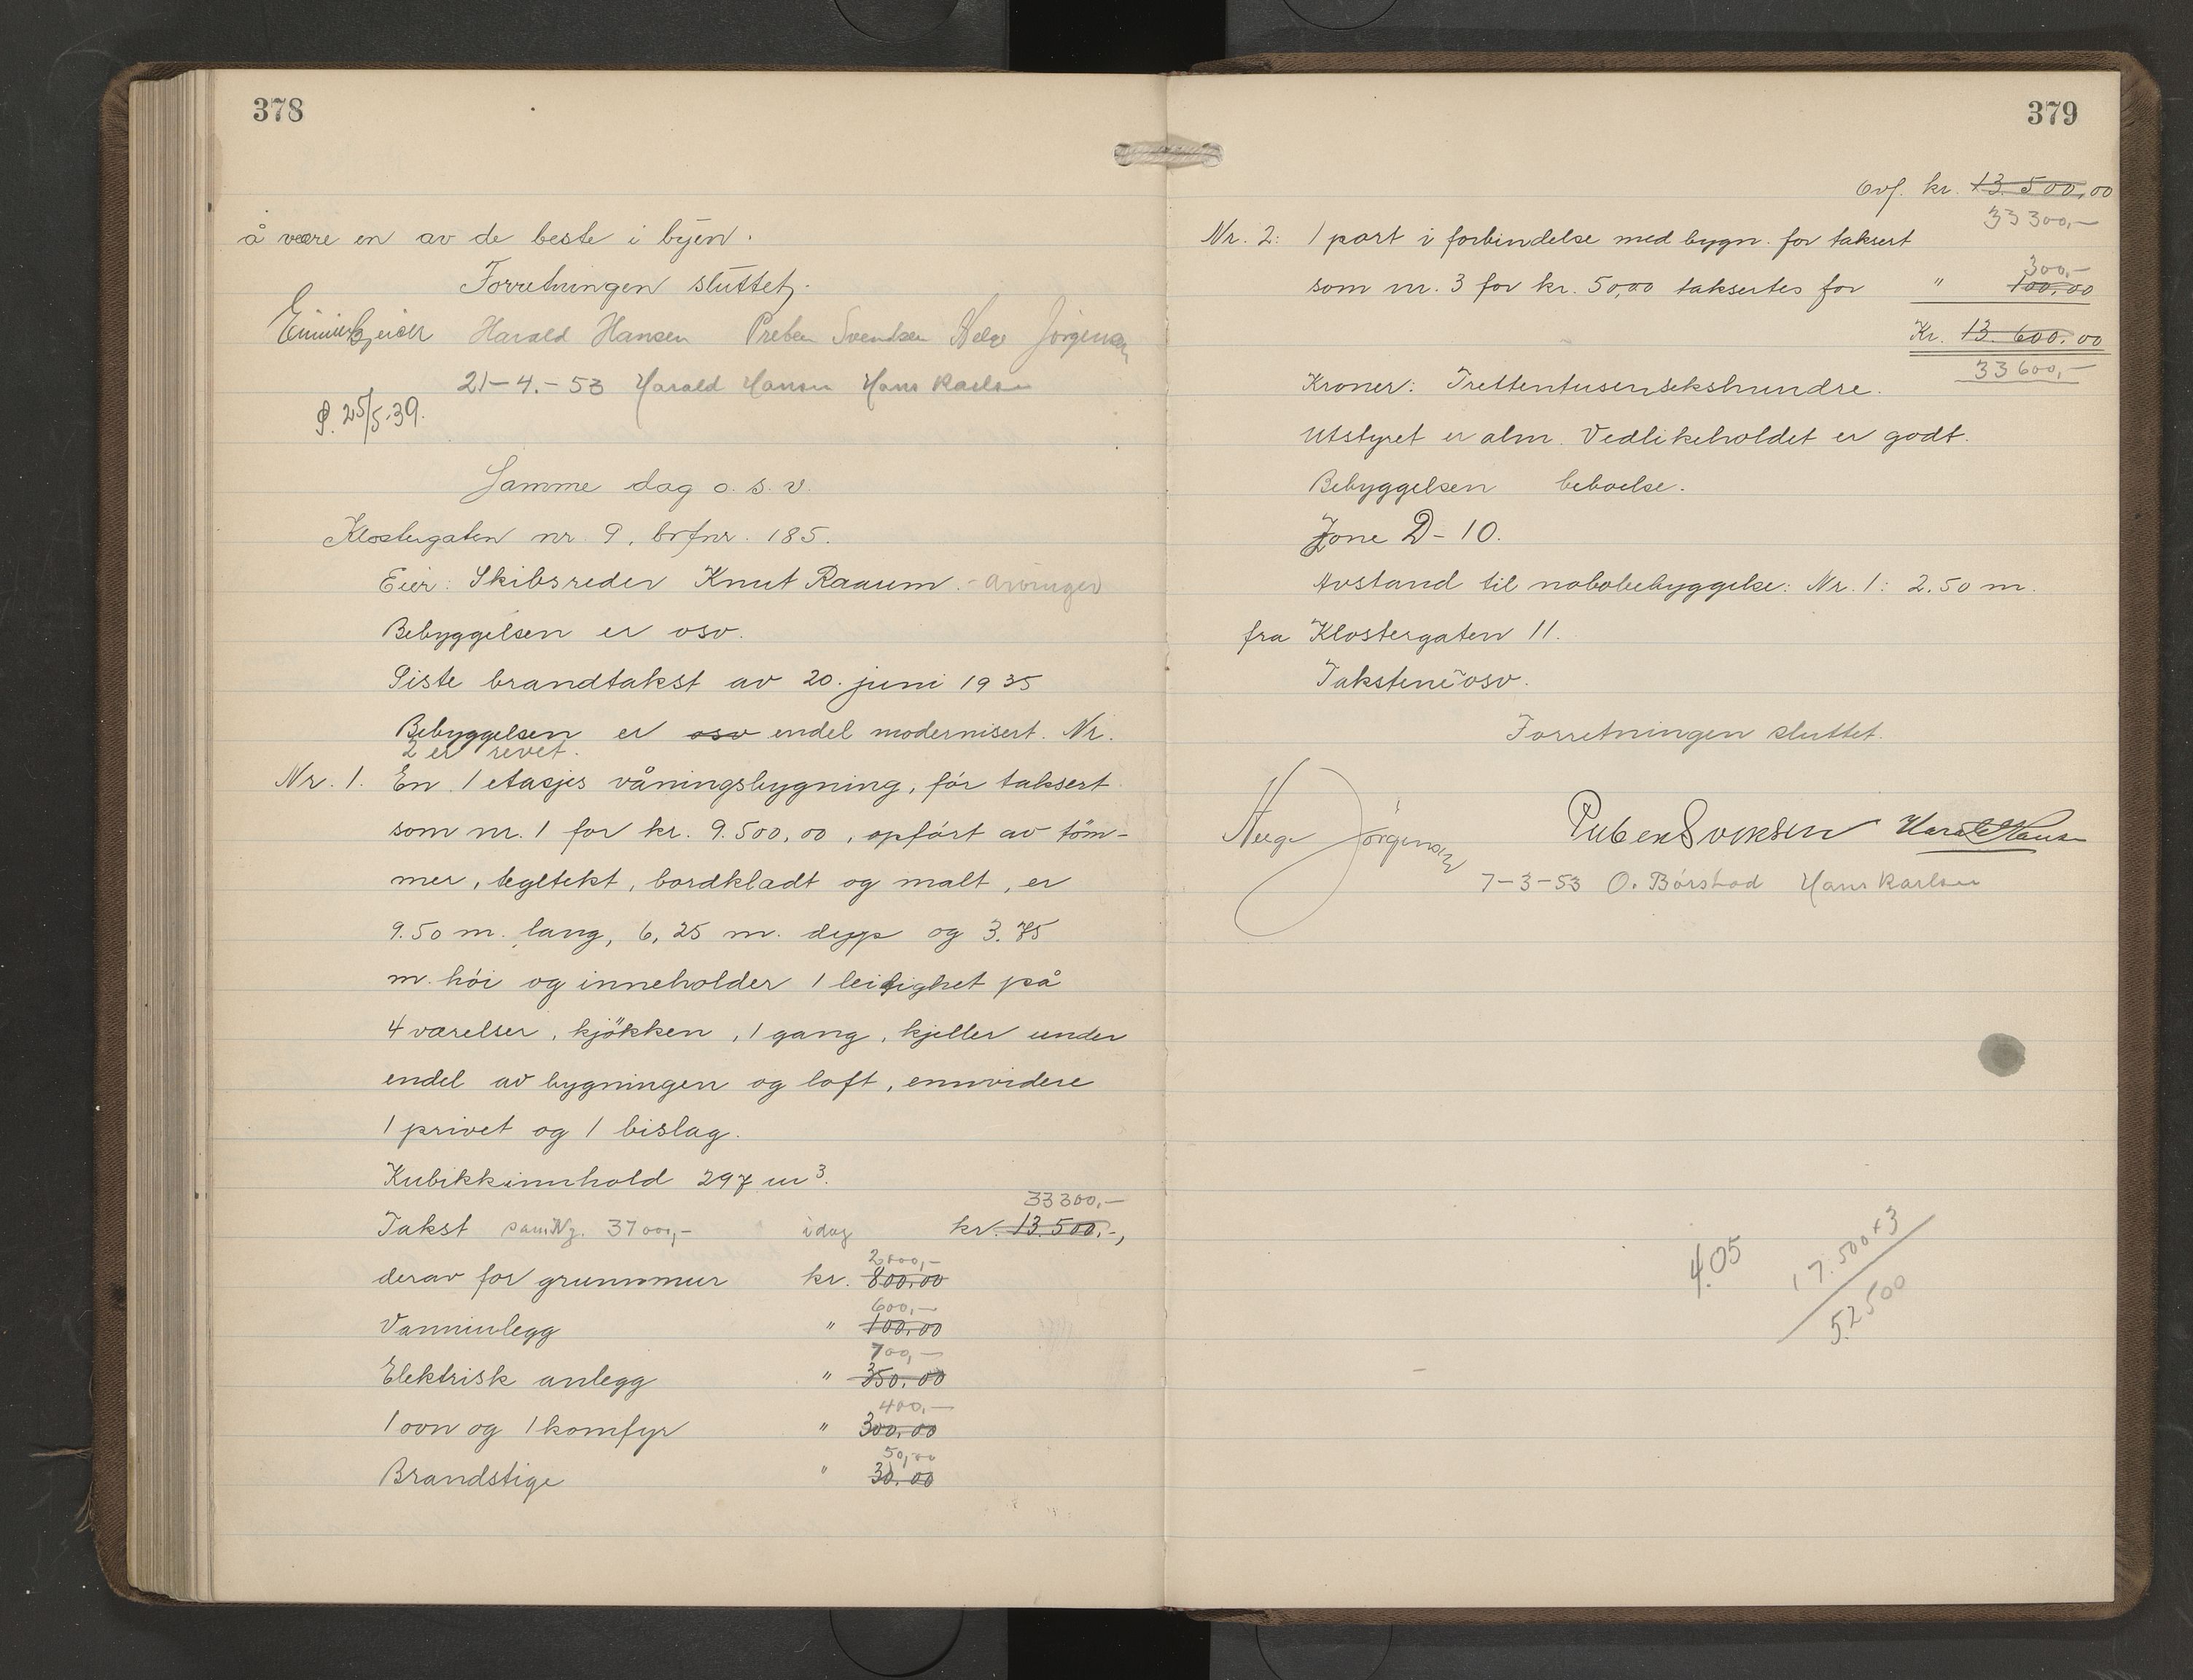 378
å være en av de beste i byen.
Forretningen sluttet.
Harald Hansen Preben Svendsen Helge Jörgensen
21-4.-53 Harald Hansen Hans Karlsen
P. 25/5.39.
Samme dag o. s. v.
Klostergaten nr. 9, brfnr. 185.
Eier: Skibsreder Knut Raaum. - arvinger
Bebyggelsen er osv.
Siste brandtakst av 20. juni 1935
Bebyggelsen er osv endel modernisert. Nr.
2 er revet.
Nr. 1. En 1 etasjes våningsbygning, før taksert
som nr. 1 for kr. 9.500,00, opført av töm-
mer, tegltekt, bordkladt og malt, er
9.50 m. lang, 6,25 m. dyp og 3.75
m. høi og inneholder 1 leilighet på
4 værelser, kjökken, 1 gang, kjeller under
endel av bygningen og loft, ennvidere
1 privet og 1 bislag.
Kubikkinnhold 297 m3.
33300,-
Takst 37000,- idag kr. 13.500.-,
2000,-
derav for grunnmur kr. 800,00
600,-
Vanninlegg " 100,00
700,-
Elektrisk anlegg " 350,00
400,-
1 ovn og 1 komfyr " 300,00
50,00
Brandstige " 30,00
379
Ovf. kr. 13.500,00
33300,-
Nr. 2: 1 port i forbindelse med bygn. før taksert
300,-
som nr. 3 for kr. 50,00 taksertes for " 100,00
Kr. 13.600,00
33600,-
Kroner: Trettentusensekshundre.
Utstyret er alm. Vedlikeholdet er godt.
Bebyggelsen beboelse.
Zone D-10.
Avstand til nabobebyggelse: Nr. 1: 2.50 m.
fra Klostergaten 11.
Takstene osv.
Forretningen sluttet.
Helge Jörgensen Preben Svendsen Harald Hansen
7-3-53 O. Börstad Hans Karlsen
4.05
17.500 x 3
52500